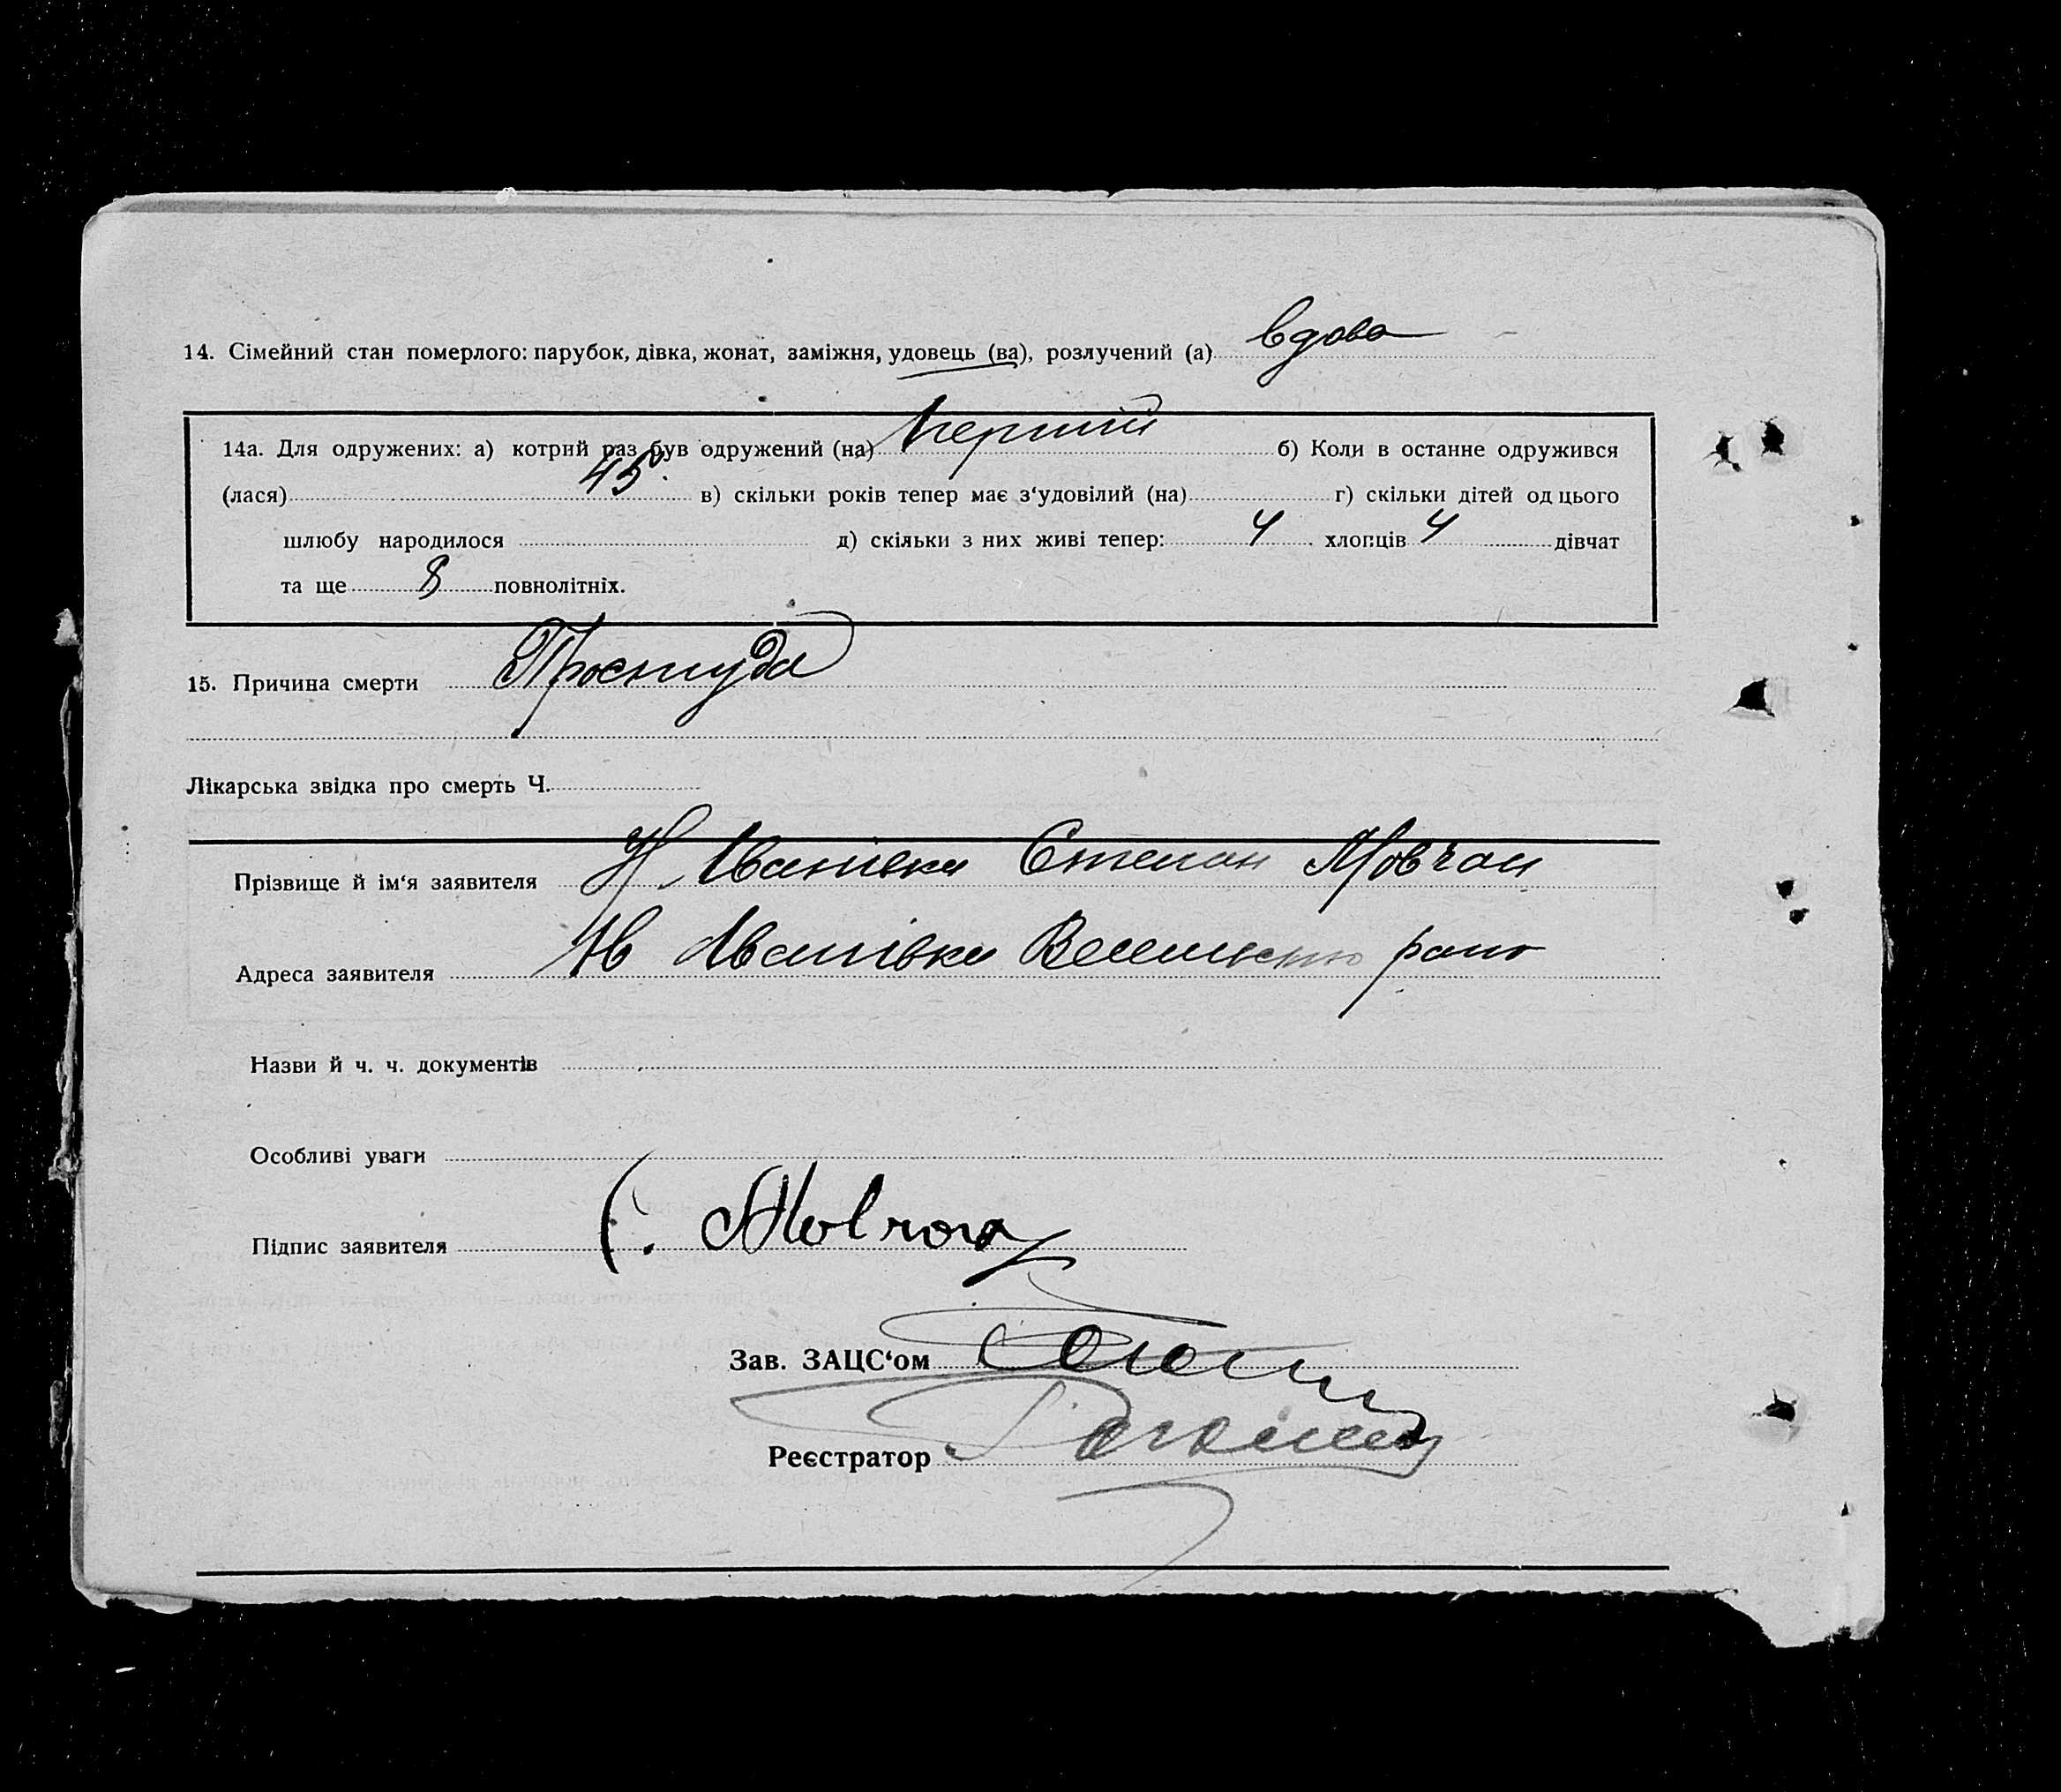 14. Сімейний стан померлого: парубок, дівка, жонат, заміжня, удовець (ва), розлучений (а) вдова
14а. Для одружених: а) котрий раз був одружений (на) перший б) Коли в останне одружився
(лася) 45 в) скільки років тепер має з‘удовілий (на) г) скільки дітей од цього
шлюбу народилося д) скільки з них живі тепер: 4 хлопців 4 дівчат
та ще 8 повнолітніх.
15. Причина смерти Простуда
Лікарська звідка про смерть Ч.
Прізвище й ім‘я заявителя Н Іванівка Степан Мовчан
Адреса заявителя Нв Іванівка рано
Назви й ч. ч. документів
Особливі уваги
Підпис заявителя С. Мовчан
Зав. ЗАЦС‘ом
Реєстратор